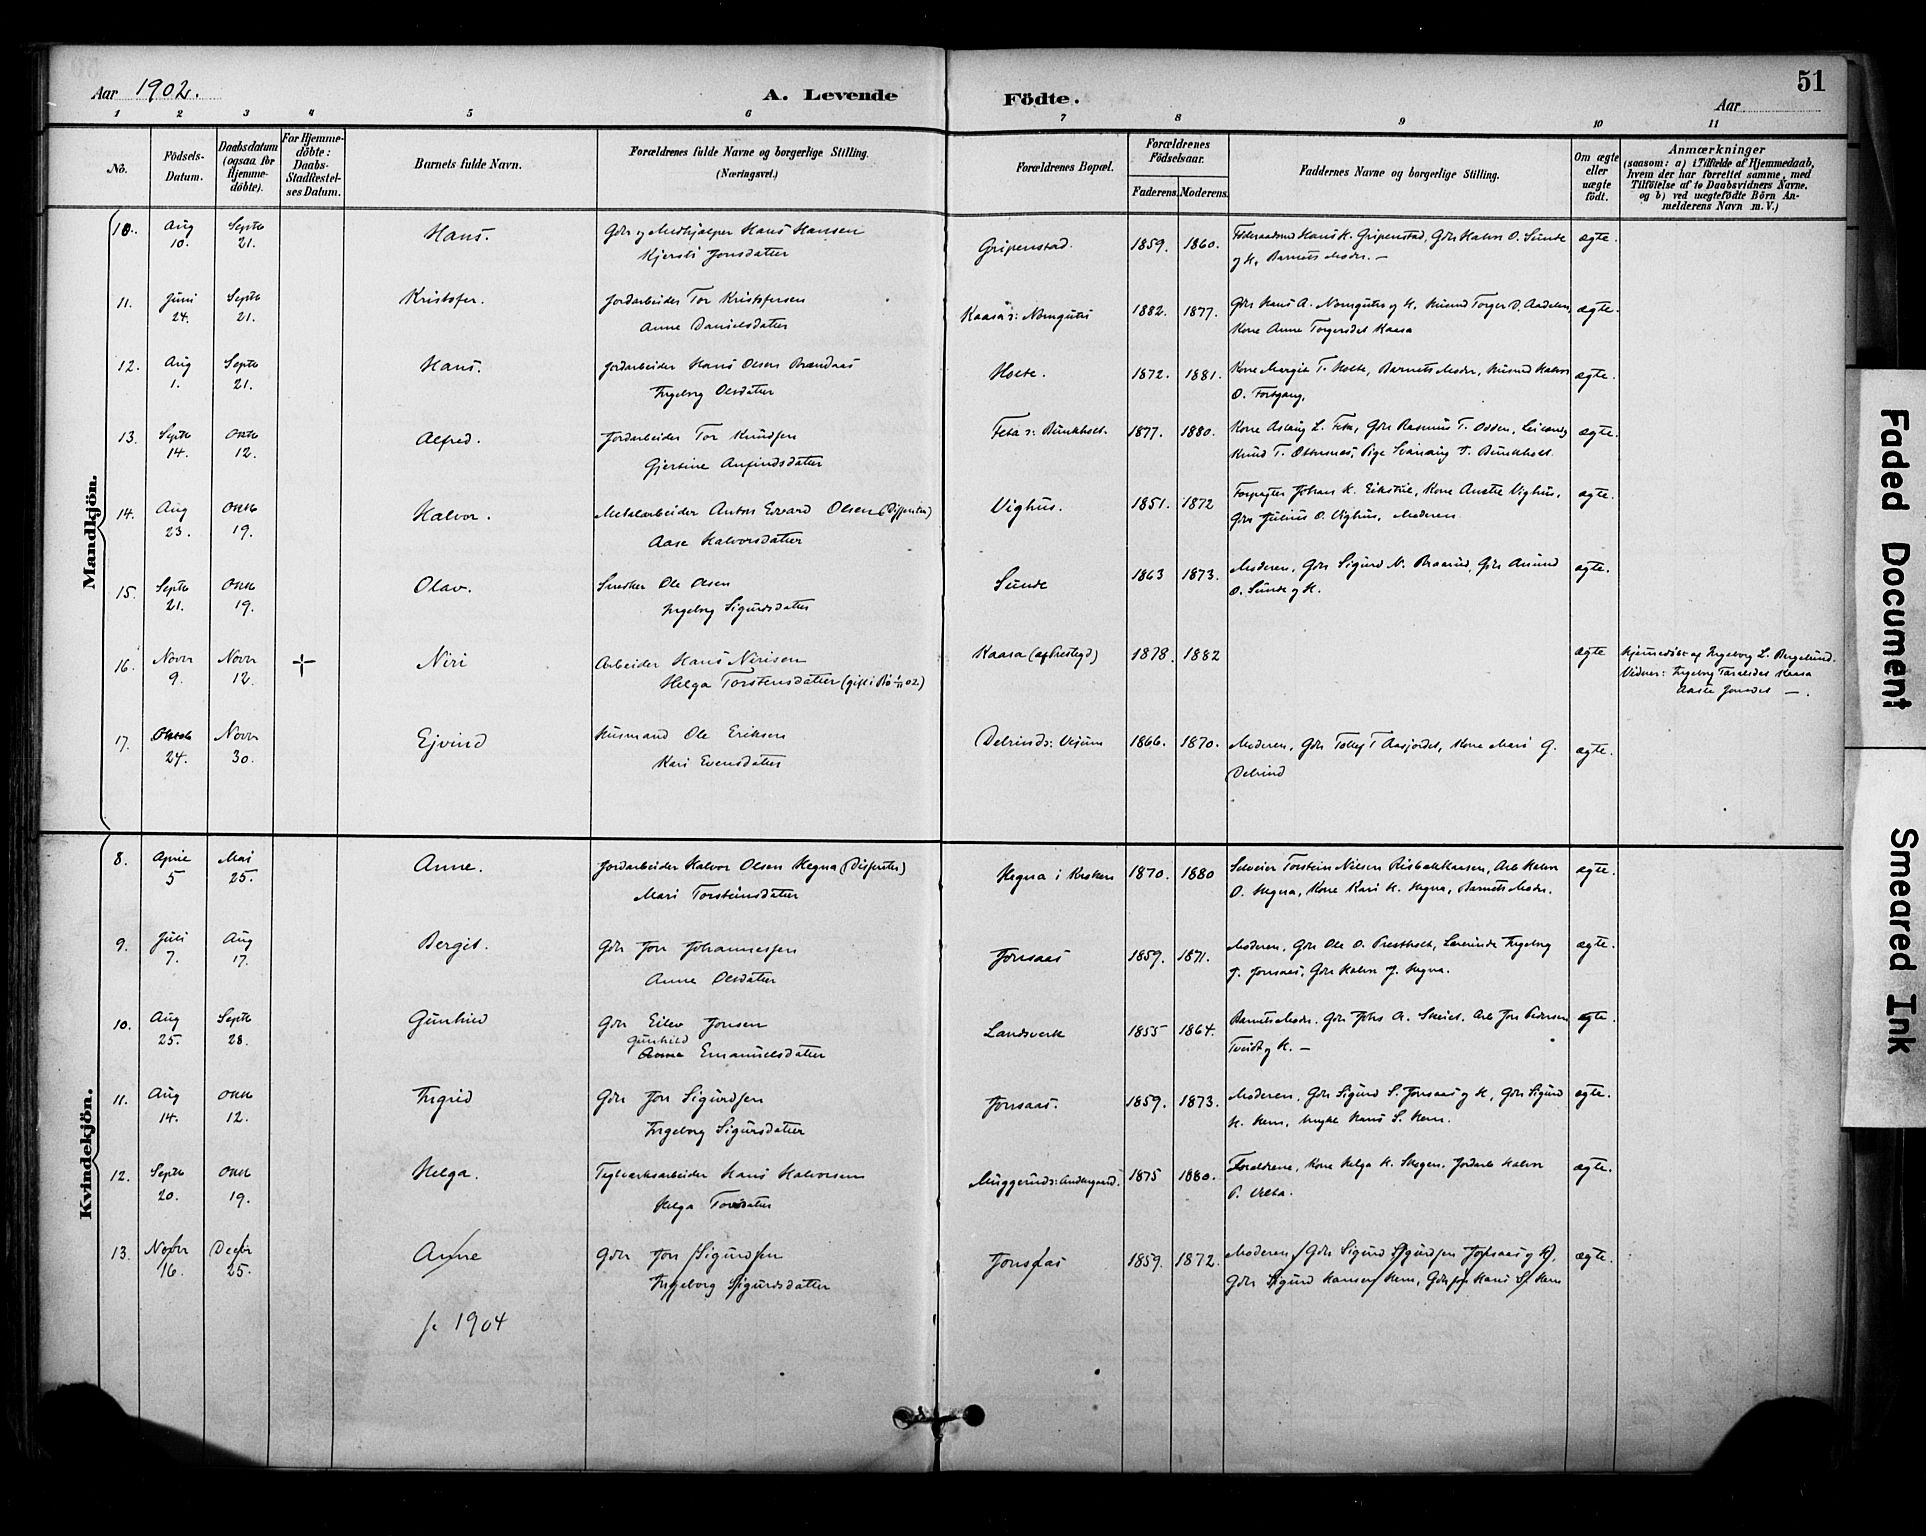 Aar 1902.
A. Levende Födte.
51
Aar
1 2 3 4 5 6 7 8 9 10 11
No.
Födsels-Datum.
Daabsdatum (ogsaa for Hjemmedöbte).
For Hjemmedöbte: Daabs-Stadfæstelses Datum.
Barnets fulde Navn.
Forældrenes fulde Navne og borgerlige Stilling. (Næringsvei.)
Forældrenes Bopæl.
Forældrenes Födselsaar.
Faderens. Moderens.
Faddernes Navne og borgerlige Stilling.
Om ægte eller uægte födt.
Anmærkninger
(saasom: a) i Tilfælde af Hjemmedaab, hvem der har forrettet samme, med Tilföielse af to Daabsvidners Navne, og b) ved uægtefödte Börn Anmelderens Navn m. V.)
Mandkjön.
10. Aug 10. Septb 21. Hans. Gdr og Medhjælper Hans Hansen Gripenstad. 1859. 1860. Föderaadsmd Hans H. Gripenstad, Gdr Halvor O. Sunde ægte.
Kjersti Jonsdatter og K, Barnets Moder. —
11. Juni 24. Septb 21. Kristofer. Jordarbeider Tor Kristofersen Kaasa s: Nomguten 1882. 1877. Gdr Hans A. Nomguten og K, Husmd Torger D. Aadelen, ægte.
Anne Danielsdatter Kone Anne Torgersdat Kaasa
12. Aug 1. Septb 21. Hans. Jordarbeider Hans Olsen Brændaas Holte. 1872. 1881. Kone Margit T. Holte, Barnets Moder, Husmd Halvor ægte.
Ingeborg Olsdatter O. Forgang,
13. Septb 14. Oktb 12. Alfred. Jordarbeider Tor Knudsen Feta s: Bunkholt. 1877. 1880. Kone Aslaug L. Feta, Gdr Rasmus T. Odden, ægte.
Gjertine Anfindsdatter Knud T. Otternes, Pige Svanaug T. Bunkholt.
14. Aug 23. Oktb 19. Halvor. Metalarbeider Anton Edvard Olsen (Dissenter) Vighus. 1851. 1872 Forpagter Johan K. Eikstue, Kone Anette Vighus, ægte.
Aase Halvorsdatter Gdr Julius O. Vighus, Moderen
15. Septb 21. Oktb 19. Olav. Snedker Ole Olsen Sunde 1863 1873. Moderen, Gdr Sigurd N. Braarud, Gdr Amund ægte.
Ingeborg Sigurdsdatter O. Sunde og K.
16. Novbr 9. Novbr 12. Niri Arbeider Hans Nirisen Kaasa (af Prestegd) 1878. 1882 ægte Hjemmedöbt af Ingeborg L. Bergelund.
Helga Torstensdatter (gift i Bö 1/11 02) Vidner: Ingeborg Taraldsdat Kaasa
Aaste Jonsdat — .
17. Oktob 24. Novbr 30. Ejvind Husmand Ole Eriksen Delrind s: Uvjum 1866. 1870. Moderen, Gdr Tollef T Aasjordet, Kone Mari G. ægte.
Kari Evensdatter Delrind
Kvindekjön.
8. April 5 Mai 25. Anne. Jordarbeider Halvor Olsen Hegna (Dissenter) Hegna i Kroken 1870. 1880 Selveier Torstein Nilsen Risbakhaasen, Arb Halvor ægte.
Mari Torsteinsdatter O. Hegna, Kone Kari H. Hegna, Barnets Moder.
9. Juli 7. Aug 17. Bergit. Gdr Jon Johannessen Jonsaas 1859. 1871. Moderen, Gdr Ole O. Prestholt, Lærerinde Ingeborg ægte.
Anne Olsdatter J. Jonsaas, Gdr Halvor J. Hegna.
10. Aug 25. Septb 28. Gunhild Gdr Eilev Jonsen Landsverk 1855 1864. Barnets Moder. Gdr Johs A. Skeiet. Arb Jon Pedersen ægte.
Gunhild
Anne Emanuelsdatter Tveidt og K. —
11. Aug 14. Oktb 12. Ingrid Gdr Jon Sigurdsen Jonsaas. 1859. 1873. Moderen, Gdr Sigurd S. Jonsaas og K, Gdr Sigurd ægte.
Ingeborg Sigursdatter H. Hem, Ungkl Hans S. Hem.
12. Septb 20. Oktb 19. Helga. Teglværksarbeider Hans Halvorsen Muggerud s: Andersgaard. 1875 1880. Forældrene, Kone Helga H. Skogen, Jordarb Halvor ægte.
Helga Torsdatter P. Uleta.
13. Novbr 16. Decbr 25. Anne Gdr Jon Sigurdsen Jonsaas 1859. 1872. Moderen, Gdr Sigurd Sigurdsen Jonsaas og K, ægte.
Ingeborg Sigurdsdatter Gdr Sigurd Hansen Hem, Hans S. Hem
f. 1904
Faded Document
Smeared Ink